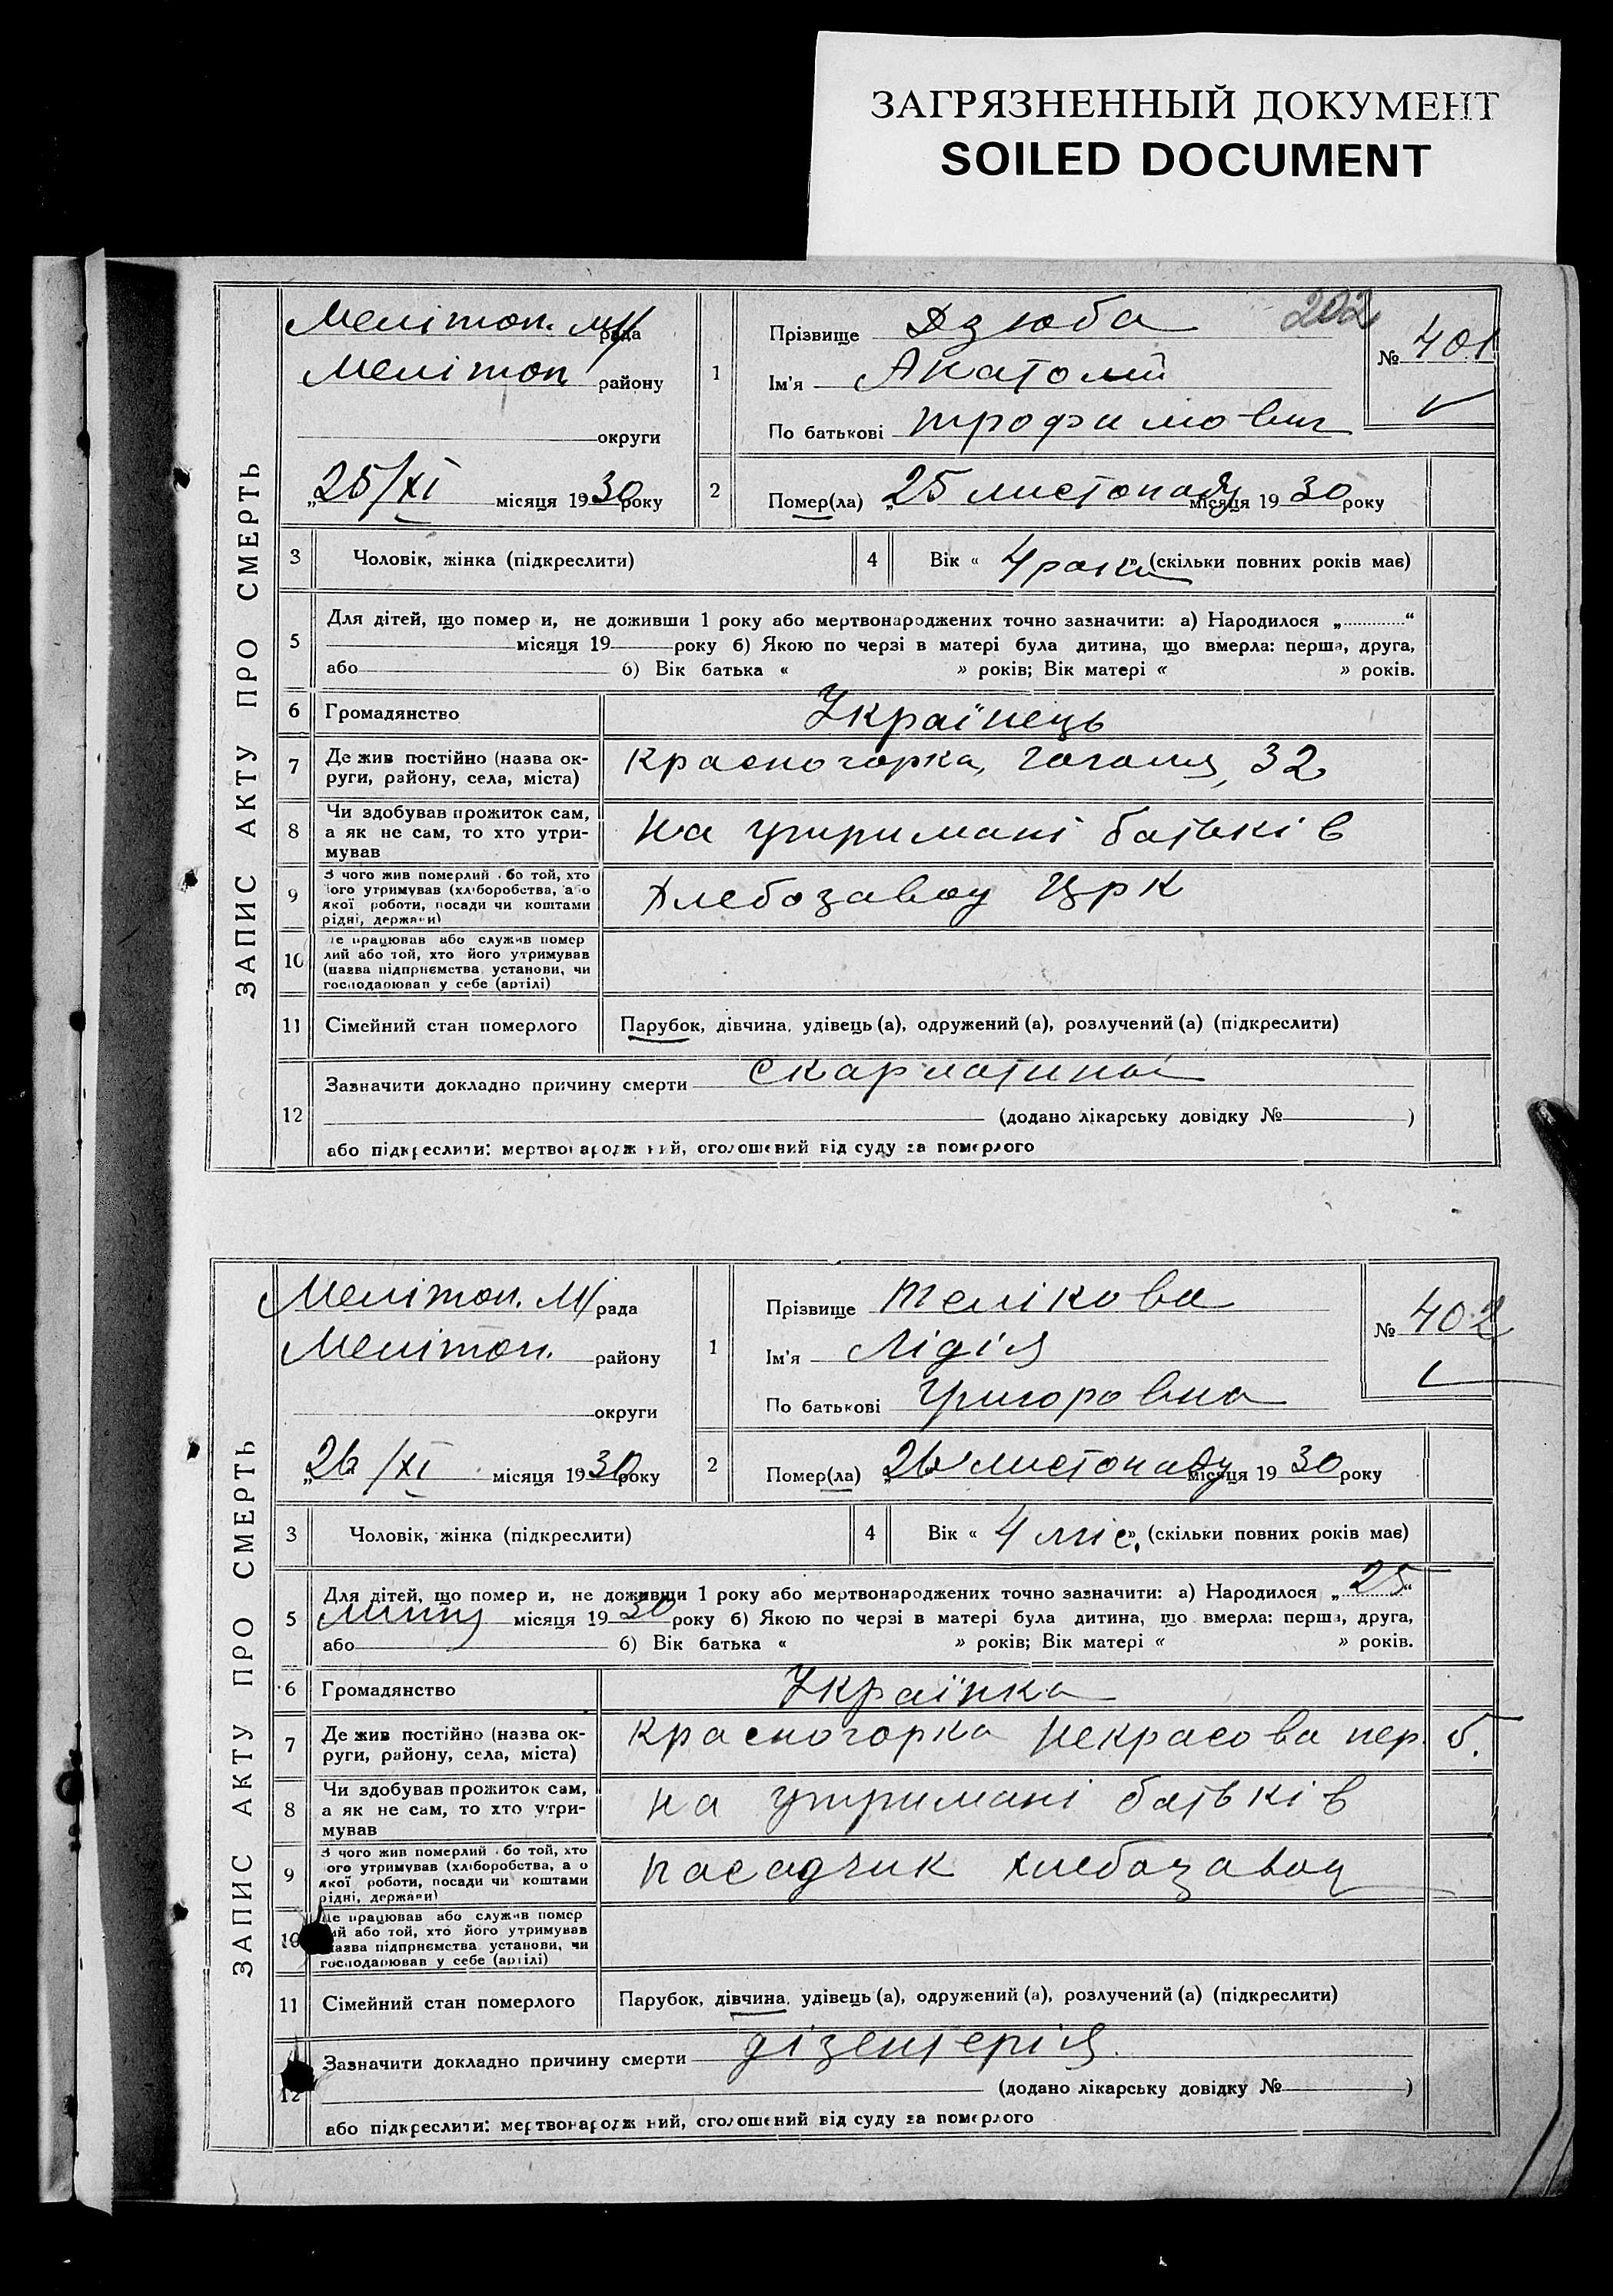 ЗАГРЯЗНЕННЫЙ ДОКУМЕНТ
SOILED DOCUMENT
202
ЗАПИС АКТУ ПРО СМЕРТЬ
Мелітоп. м/ рада
Мелітоп району
округи
„25/XI місяця 1930 року
1
Прізвище Дзюба
Ім'я Анатолий
По батькові трофимович
№ 401
2
Помер(ла) „25 листопаду місяця 1930 року
3 Чоловік, жінка (підкреслити)
4 Вік « 4 роки » (скільки повних років має)
5
Для дітей, що помер и, не доживши 1 року або мертвонароджених точно зазначити: а) Народилося „ “
місяця 19 року б) Якою по черзі в матері була дитина, що вмерла: перша, друга,
або б) Вік батька « » років; Вік матері « » років.
6 Громадянство Українець
7 Де жив постійно (назва ок-
руги, району, села, міста)
Красногорка, Гоголя, 32
8 Чи здобував прожиток сам,
а як не сам, то хто утри-
мував
На утримані батьків
9 З чого жив померлий або той, хто
його утримував (хліборобства, або
якої роботи, посади чи коштами
рідні, держави)
Хлебозавод Црк
10 Де працював або служив помер
лий або той, хто його утримував
(назва підприємства установи, чи
господарював у себе (артілі)
11 Сімейний стан померлого Парубок, дівчина, удівець (а), одружений (а), розлучений (а) (підкреслити)
12 Зазначити докладно причину смерти Скарлатина
(додано лікарську довідку № )
або підкреслити: мертвонародж ний, оголошений від суду за померлого
ЗАПИС АКТУ ПРО СМЕРТЬ
Мелітоп. М/ рада
Мелітоп. району
округи
„26/XI місяця 1930 року
1
Прізвище Телікова
Ім'я Лідія
По батькові Григоровна
№ 402
2
Помер(ла) „26 листопаду місяця 1930 року
3 Чоловік, жінка (підкреслити)
4 Вік « 4 міс. » (скільки повних років має)
5
Для дітей, що помер и, не доживши 1 року або мертвонароджених точно зазначити: а) Народилося „25“
липц місяця 1930 року б) Якою по черзі в матері була дитина, що вмерла: перша, друга,
або б) Вік батька « » років; Вік матері « » років.
6 Громадянство Українка
7 Де жив постійно (назва ок-
руги, району, села, міста)
Красногорка Некрасова пер. 5.
8 Чи здобував прожиток сам,
а як не сам, то хто утри-
мував
На утримані батьків
9 З чого жив померлий або той, хто
його утримував (хліборобства, або
якої роботи, посади чи коштами
рідні, держави)
Посадчик хлебозавод
10 Де працював або служив помер
лий або той, хто його утримував
назва підприємства установи, чи
господарював у себе (артілі)
11 Сімейний стан померлого Парубок, дівчина, удівець (а), одружений (а), розлучений (а) (підкреслити)
12 Зазначити докладно причину смерти дізентерія
(додано лікарську довідку № )
або підкреслити: мертвонародж ний, оголошений від суду за померлого